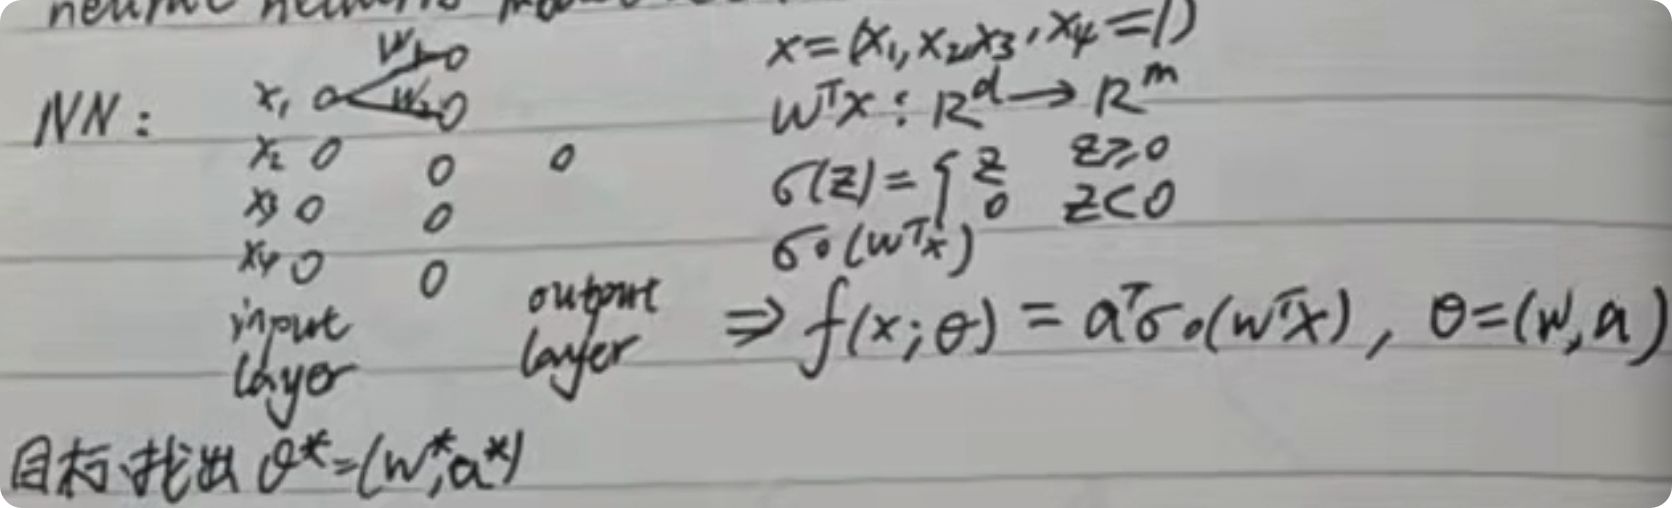 NN:
x₁ W₁
W₂
x₂
x₃
x₄
input layer
output layer
x=(x₁,x₂,x₃,x₄=1)
WᵀX: Rᵈ→Rᵐ
σ(z)={z z≥0
0 z<0
σ∘(wᵀx)
⇒ f(x;θ)=aᵀσ∘(wᵀx), θ=(w,a)
目标:找出 θ*=(w*,a*)